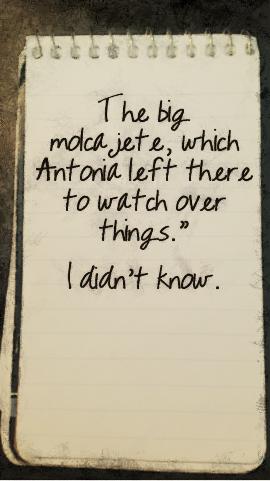 The big
molcajete, which
Antonia left there
to watch over
things.”
I didn't know.